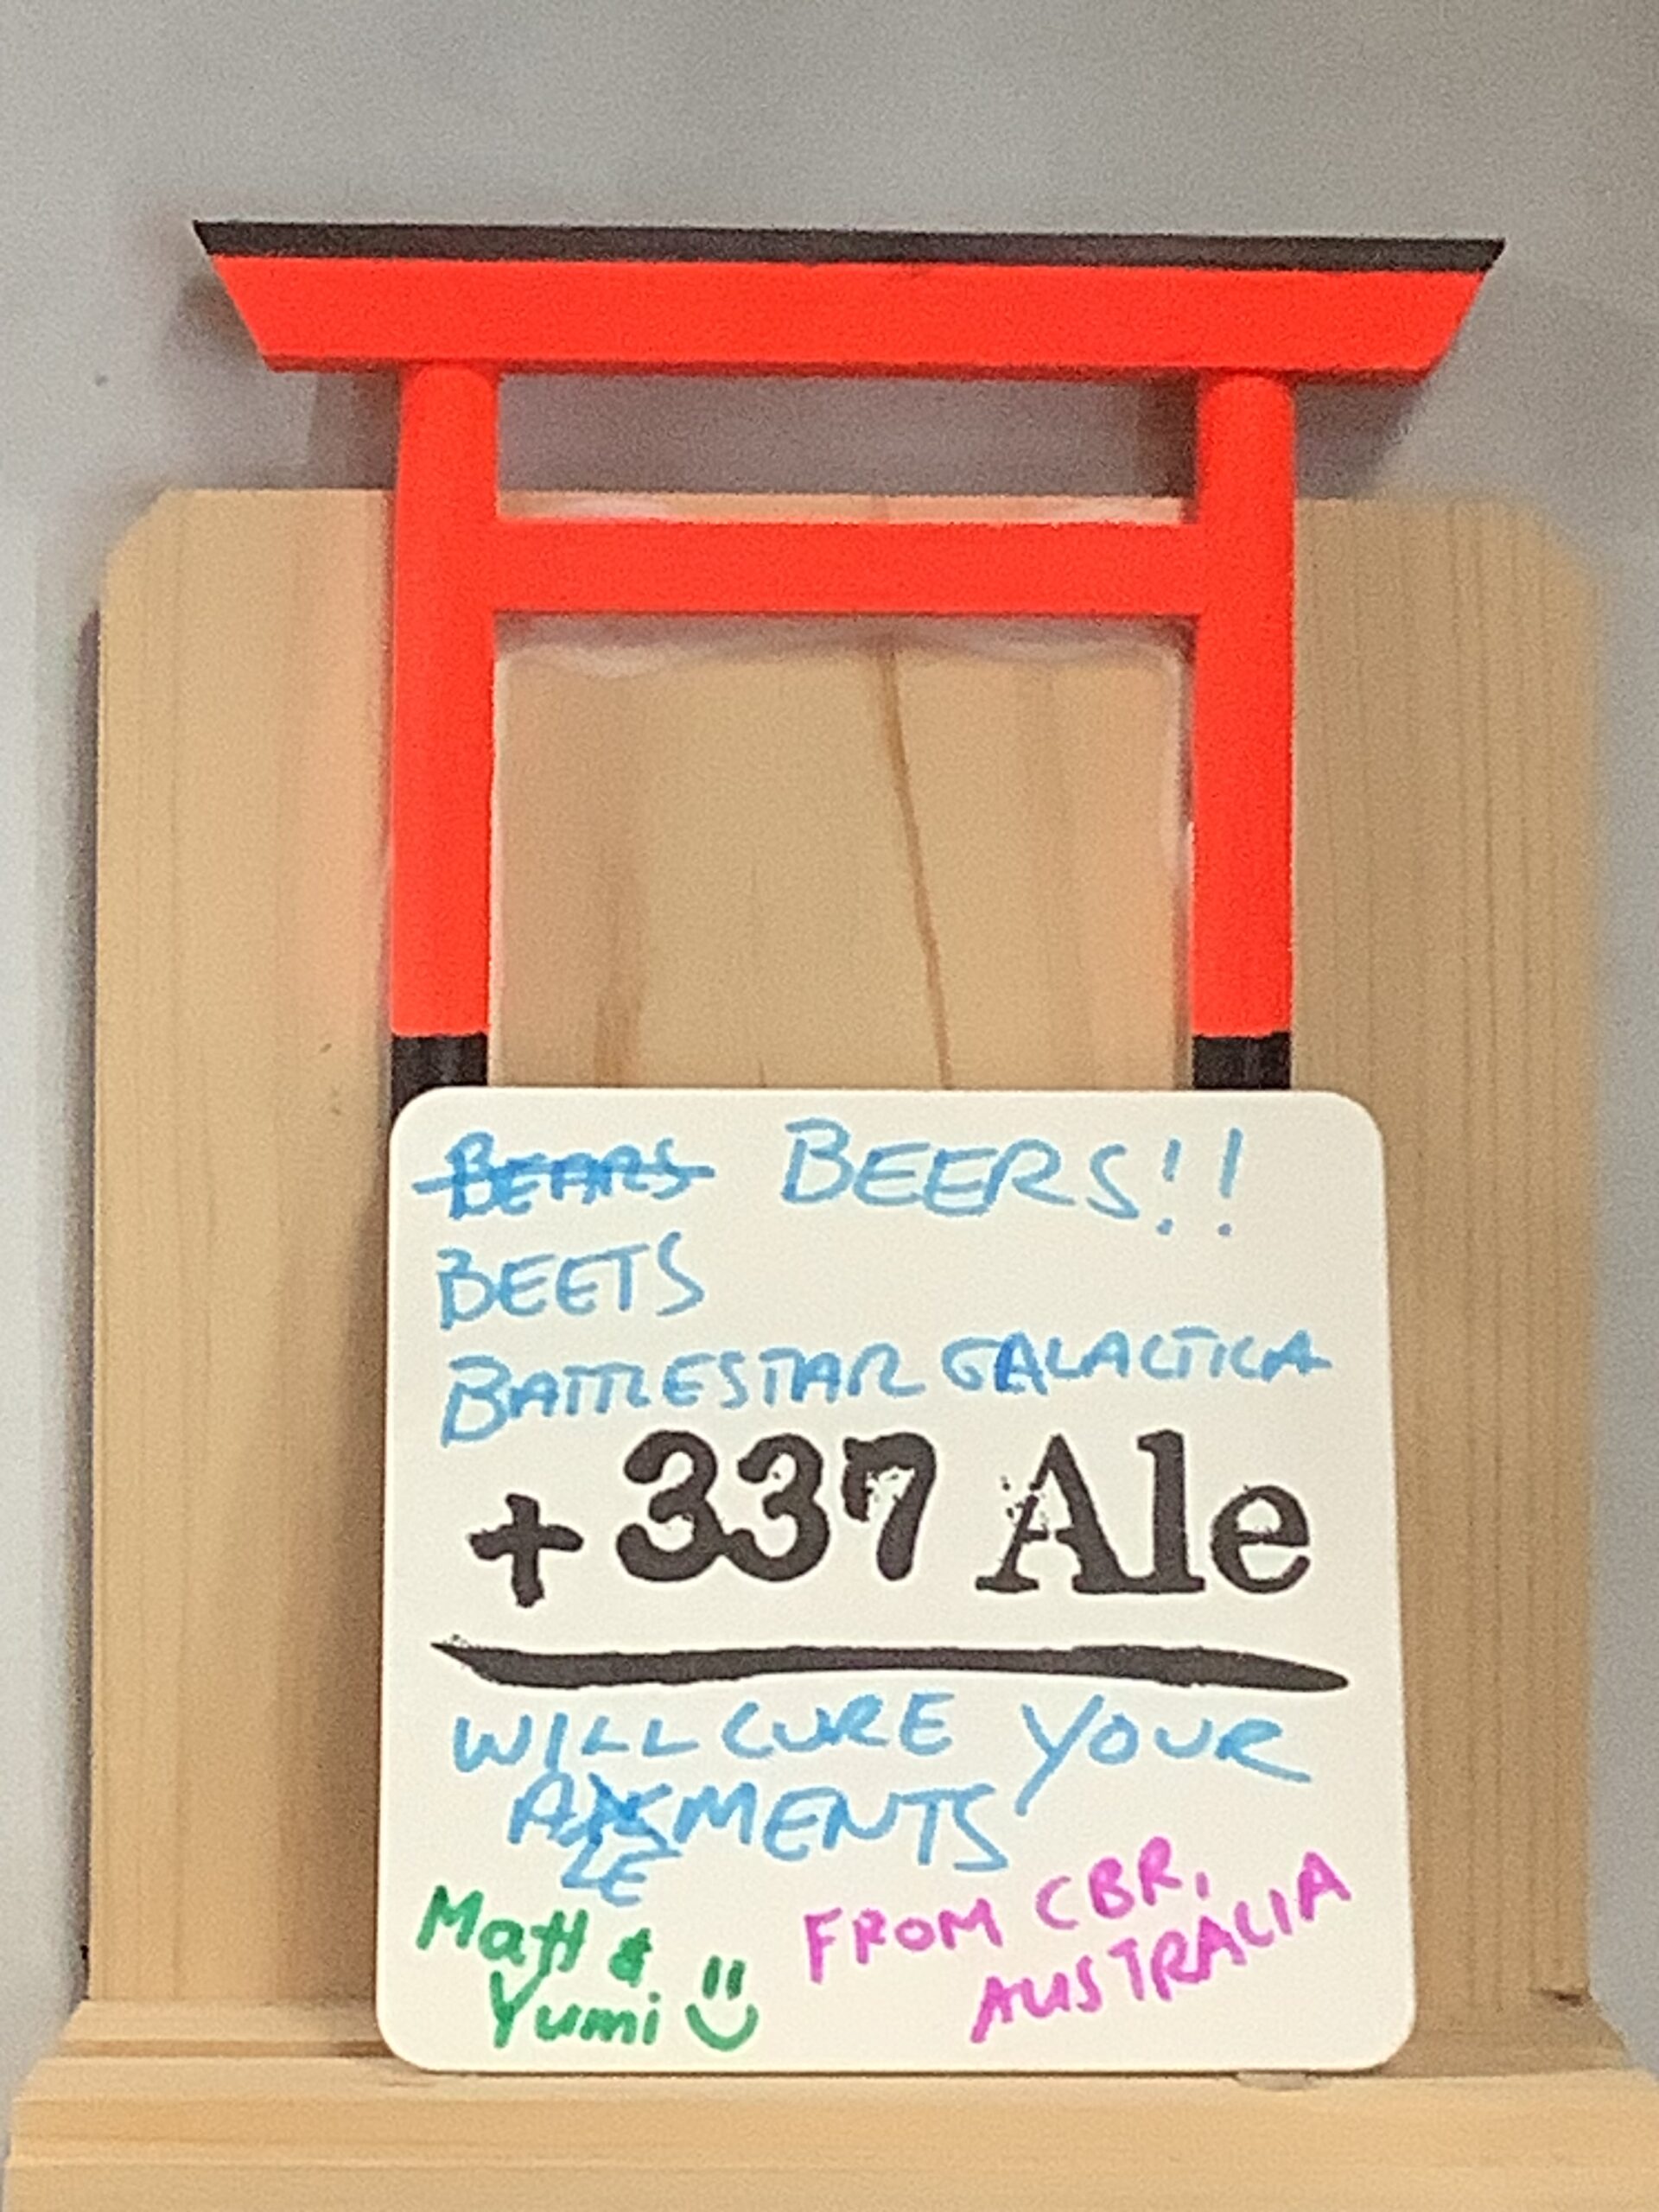 BEARS BEERS!!
BEETS
BATTLESTAR GALACTICA
+337 Ale
WILL CURE YOUR
MENTS
LE
Matt &
Yumi
FROM CBR,
AUSTRALIA